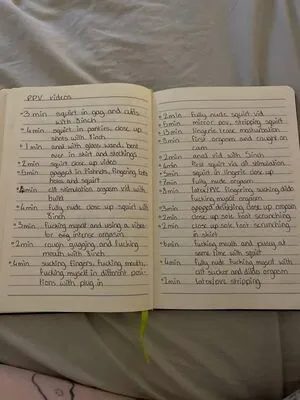 PPV videos
- 3min squirt in gag and cuffs
with 8inch
- 4min squirt in panties, close up
shots with 8inch
- 1min anal with glass wand, bent
over in skirt and stockings
- 2min squirt close up video
- 5min gagged in fishnets, fingering, tits
hang and squirt
- min clit stimulation orgasm vid with
bullet
- 4min fully nude close up squirt with
8inch
- 3min fucking myself and using a vibe
for big intense orgasm
- 2min rough gagging and fucking
mouth with 8inch
- 4min sucking fingers, fucking mouth,
fucking myself in different posi-
tions with plug in
- 2min fully nude squirt vid
- 6min mirror pov, stripping squirt
- 13min lingerie tease masturbation
- 9min first orgasm and caught on
cam
- 2min anal vid with 5inch
- 4min first squirt via clit stimulation
- 5min squirt in lingerie close up
- 7min fully nude orgasm
- 8min latex/PVC fingering, sucking dildo
fucking myself, orgasm
- 3min gagged dribbling close up orgasm
- 2min close up sole foot scrunching
- 2min close up sole foot scrunching
in skirt
- 6min fucking mouth and pussy at
same time with squirt
- 4min fully nude fucking myself with
clit sucker and dildo orgasm
- 2min latex/pvc stripping